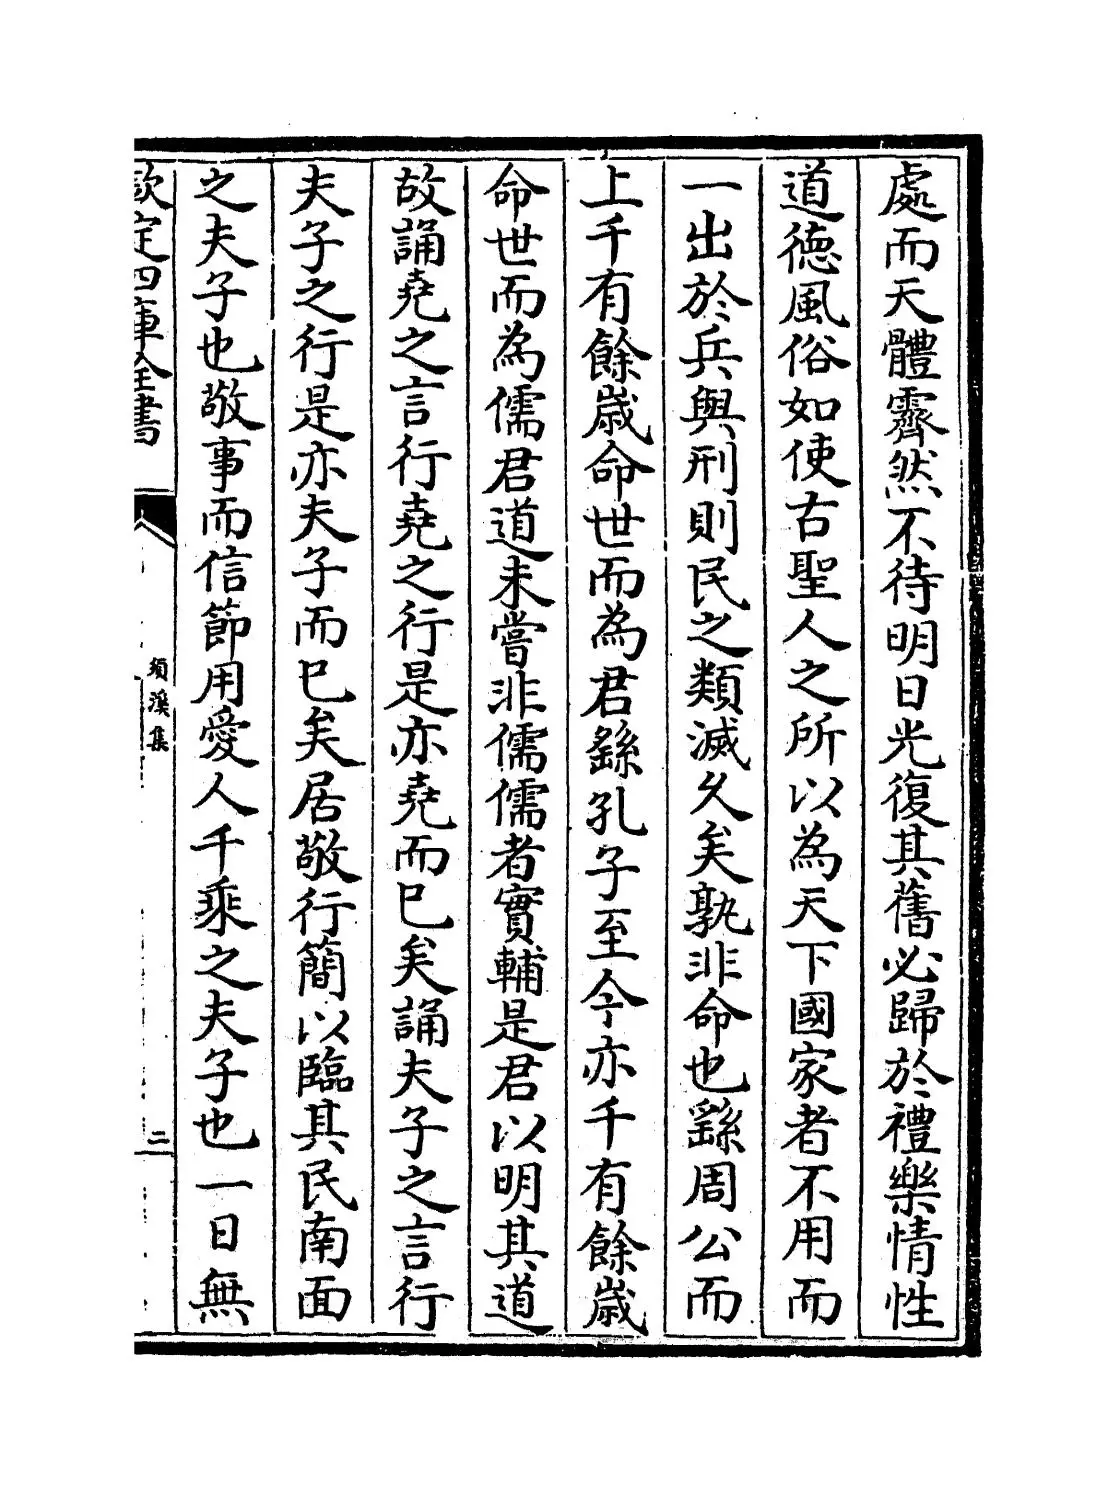 處而天體霽然不待明日光復其舊必歸於禮樂情性
道德風俗如使古聖人之所以為天下國家者不用而
一出於兵與刑則民之類滅久矣孰非命也繇周公而
上千有餘歲命世而為君繇孔子至今亦千有餘歲
命世而為儒君道未嘗非儒儒者實輔是君以明其道
故誦堯之言行堯之行是亦堯而已矣誦夫子之言行
夫子之行是亦夫子而已矣居敬行簡以臨其民南面
之夫子也敬事而信節用愛人千乘之夫子也一日無
欽定四庫全書
須溪集
二